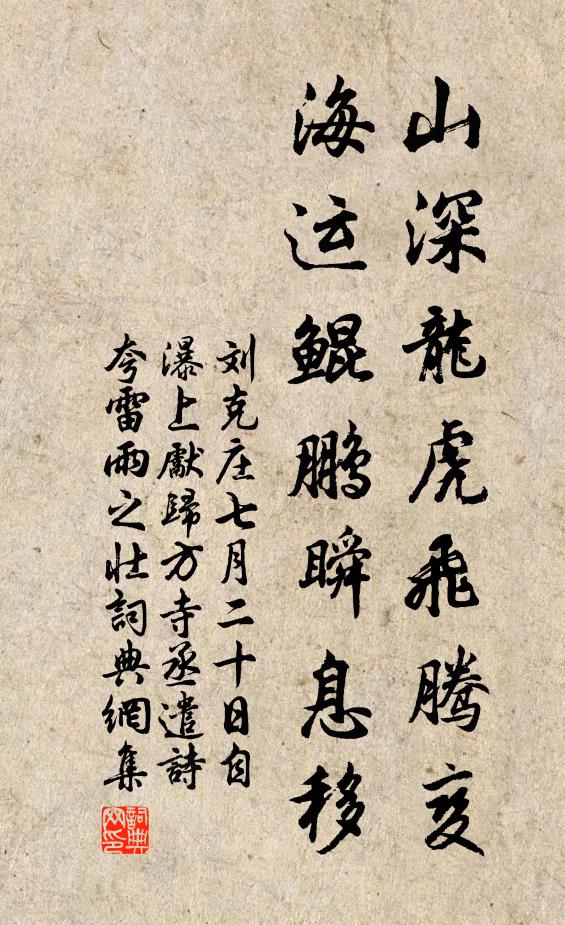 山深龍虎飛腾变
海运鲲鹏瞬息移
刘克庄七月二十日自
瀑上獻歸方寺丞遣詩
夸雷雨之壮詞典網集
詞典网印